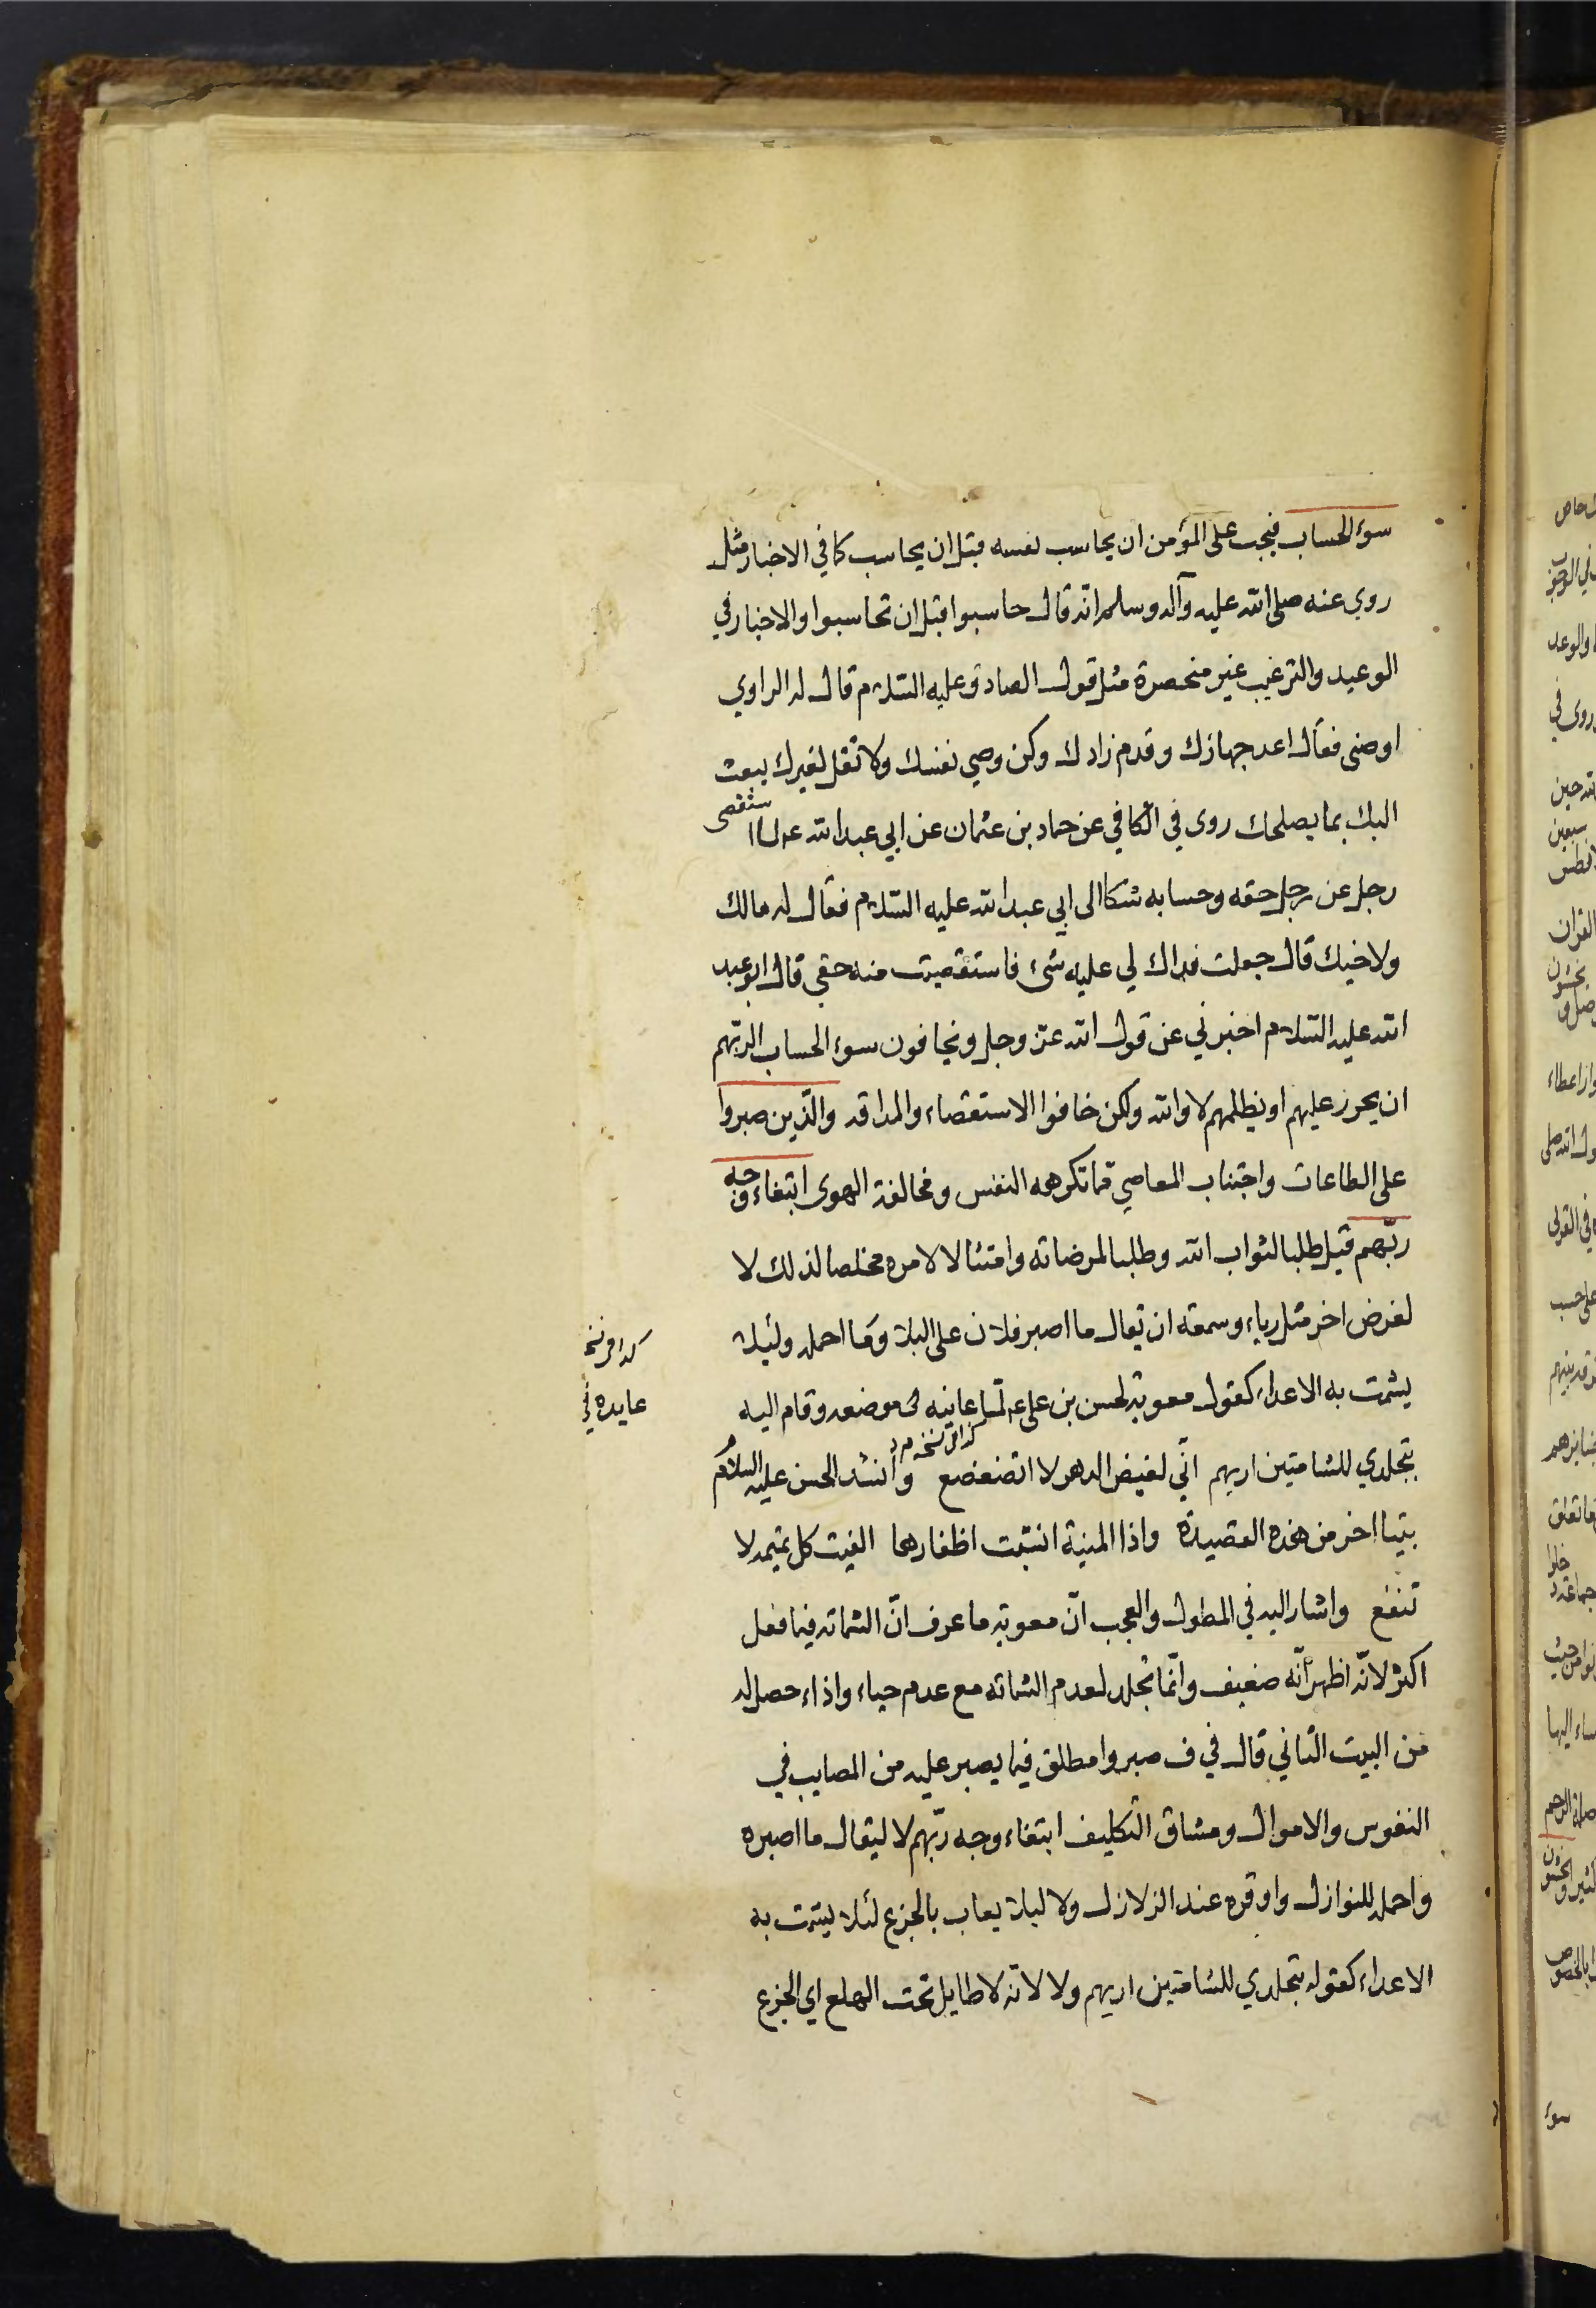 سوء الحساب فيجب على المؤمن ان يحاسب نفسه قبل ان يحاسب كما في الاخبار مثل
روي عنه صلى الله عليه وآله وسلم انه قال حاسبوا قبل ان تحاسبوا والاخبار في
الوعيد والترغيب غير منحصرة مثل قول الصادق عليه السلام قال له الراوي
اوصني فقال اعد جهازك وقدم زادك وكن وصي نفسك ولا تقل لغيرك يبعث
اليك بما يصلحك روى في الكافي عن حماد بن عثمان عن ابي عبد الله ستقصى
رجل عن رجل حقه وحسابه شكا الى ابي عبد الله عليه السلام فقال له مالك
ولاخيك قال جعلت فداك لي عليه شئ فاستقصيت منه حقي قال ابو عبد
الله عليه السلام اخبرني عن قول الله عز وجل ويخافون سوء الحساب اتريهم
ان يحوز عليهم او يظلمهم لا والله ولكن خافوا الاستقصاء والمداقه والذين صبروا
على الطاعات واجتناب المعاصي مما تكرهه النفس ومخالفة الهوى ابتغاء وجه
ربهم قيل طلبا لثواب الله وطلبا لمرضاته وامتثالا لامره مخلصا لذلك لا
لغرض اخر مثل رياء وسمعه ان يقال ما اصبر فلان على البلاء وما احمله ولئلا
يشمت به الاعداء كقول معوية لحسن بن علي ع لما عاينه في موضعه وقام اليه
كذا في نسخه
عايده في
بتجلدي للشامتين اريهم اني لغيض الدهر لا اتضعضع وأنشد الحسن عليه السلام
كذا في نسخه
بيتا اخر من هذه القصيدة واذا المنية انشبت اظفارها الفيت كل تميمه لا
تنفع واشار اليه في المطول والعجب ان معوية ما عرف ان الشماته فيما فعل
اكثر لانه اظهر انه ضعيف وانما تجلد لعدم الشماته مع عدم حياء واذاء حصل له
من البيت الثاني قال في ف صبروا مطلق فيما يصبر عليه من المصايب في
النفوس والاموال ومشاق التكليف ابتغاء وجه ربهم لا ليقال ما اصبره
واحمله للنوازل واوقره عند الزلازل ولا لئلا يعاب بالجزع لئلا يشمت به
الاعداء كقوله بتجلدي للشامتين اريهم ولا لانه لا طايل تحت الهلع اي الجزع